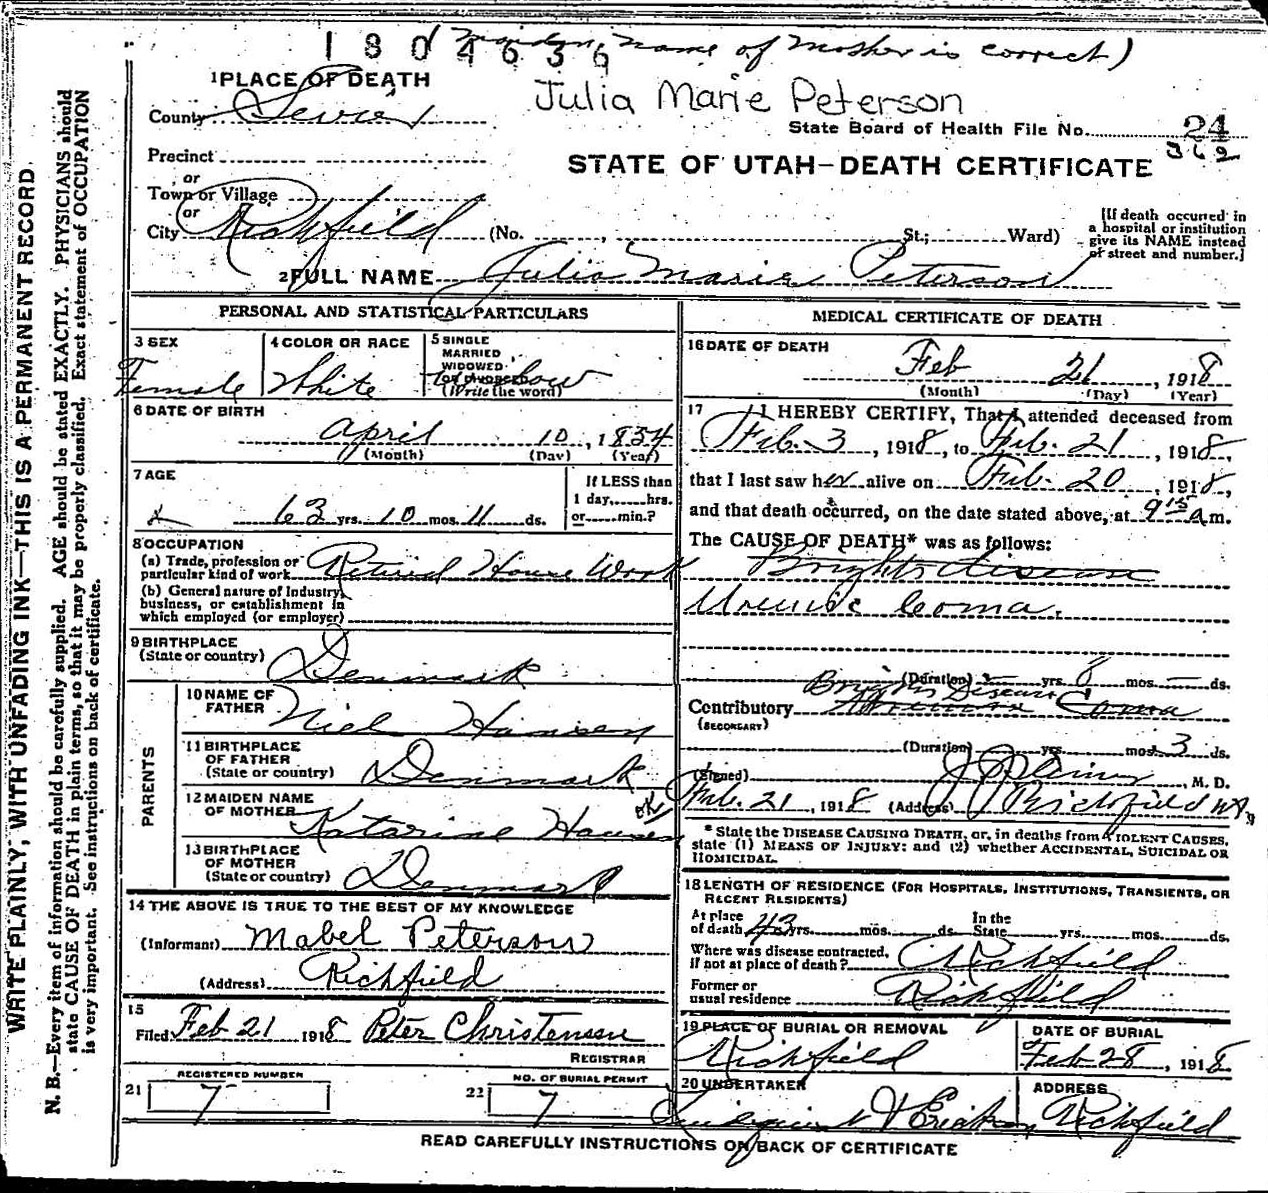 1804636
(Maiden name of Mother is correct)
1 PLACE OF DEATH
Julia Marie Peterson
County Sevier
State Board of Health File No. 24
362
Precinct
STATE OF UTAH—DEATH CERTIFICATE
or
Town or Village
or
City Richfield (No. , St.; Ward)
[If death occurred in a hospital or institution give its NAME instead of street and number.]
2 FULL NAME Julia Marie Peterson
PERSONAL AND STATISTICAL PARTICULARS
3 SEX
Female
4 COLOR OR RACE
White
5 SINGLE
MARRIED
WIDOWED
OR DIVORCED
(Write the word)
6 DATE OF BIRTH
April 10, 1834
(Month) (Day) (Year)
7 AGE
63 yrs. 10 mos. 11 ds.
If LESS than
1 day, hrs.
or min.?
8 OCCUPATION
(a) Trade, profession or
particular kind of work Retired House Work
(b) General nature of Industry,
business, or establishment in
which employed (or employer)
9 BIRTHPLACE
(State or country) Denmark
PARENTS
10 NAME OF
FATHER Niel Hansen
11 BIRTHPLACE
OF FATHER
(State or country) Denmark
12 MAIDEN NAME
OF MOTHER Katarine Hansen
OK
13 BIRTHPLACE
OF MOTHER
(State or country) Denmark
14 THE ABOVE IS TRUE TO THE BEST OF MY KNOWLEDGE
(Informant) Mabel Peterson
(Address) Richfield
15
Filed Feb 21 1918 Peter Christensen
REGISTRAR
REGISTERED NUMBER
21 7
NO. OF BURIAL PERMIT
22 7
MEDICAL CERTIFICATE OF DEATH
16 DATE OF DEATH
Feb 21, 1918
(Month) (Day) (Year)
17 I HEREBY CERTIFY, That I attended deceased from
Feb. 3, 1918, to Feb. 21, 1918,
that I last saw her alive on Feb. 20, 1918,
and that death occurred, on the date stated above, at 9 15 a m.
The CAUSE OF DEATH* was as follows:
Brights disease
Uremic Coma.
(Duration) yrs. 8 mos. ds.
Brights Disease
Contributory Coma
(SECONDARY)
(Duration) yrs. mos. 3 ds.
(Signed) , M. D.
Feb. 21, 1918 (Address) Richfield
* State the DISEASE CAUSING DEATH, or, in deaths from VIOLENT CAUSES,
state (1) MEANS OF INJURY: and (2) whether ACCIDENTAL, SUICIDAL OR
HOMICIDAL.
18 LENGTH OF RESIDENCE (FOR HOSPITALS, INSTITUTIONS, TRANSIENTS, OR
RECENT RESIDENTS)
At place
of death 43 yrs. mos. ds.
In the
State yrs. mos. ds.
Where was disease contracted,
if not at place of death? Richfield
Former or
usual residence Richfield
19 PLACE OF BURIAL OR REMOVAL
Richfield
DATE OF BURIAL
Feb 28, 1918.
20 UNDERTAKER
ADDRESS
Richfield
READ CAREFULLY INSTRUCTIONS ON BACK OF CERTIFICATE
WRITE PLAINLY, WITH UNFADING INK—THIS IS A PERMANENT RECORD.
N. B.—Every item of Information should be carefully supplied. AGE should be stated EXACTLY. PHYSICIANS should
state CAUSE OF DEATH in plain terms, so that it may be properly classified. Exact statement of OCCUPATION
is very important. See instructions on back of certificate.